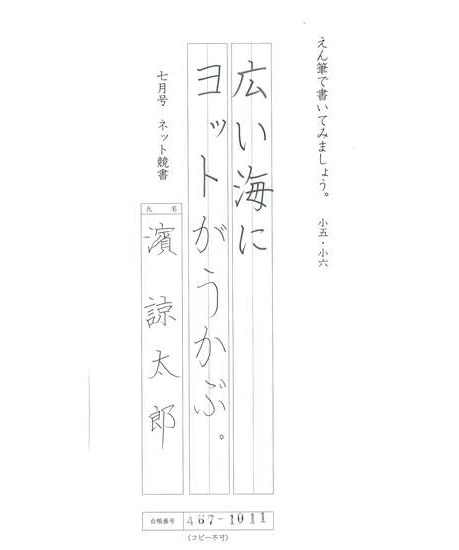 えん筆で書いてみましょう。 小五・小六
広い海に
ヨットがうかぶ。
七月号 ネット競書
氏名
濱 諒太郎
台帳番号 467-1011
(コピー不可)